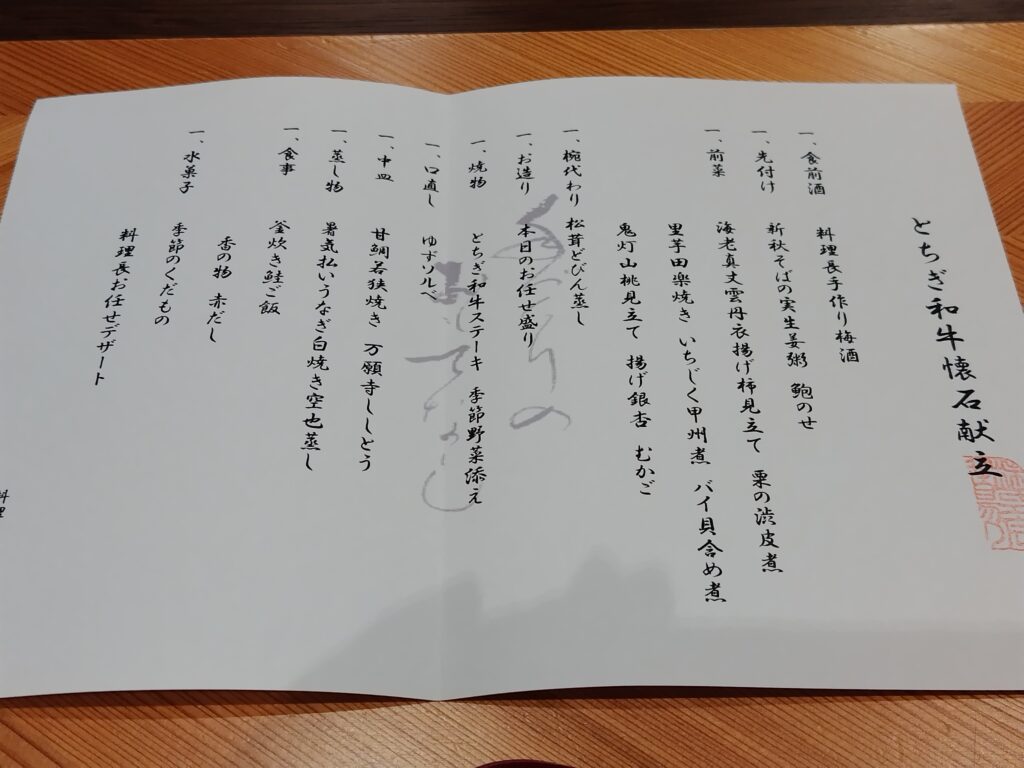 とちぎ和牛懐石献立
一、食前酒
料理長手作り梅酒
一、先付け
新秋そばの実生姜粥 鮑のせ
一、前菜
海老真丈雲丹衣揚げ柿見立て 栗の渋皮煮
里芋田楽焼き いちじく甲州煮 バイ貝含め煮
鬼灯山桃見立て 揚げ銀杏 むかご
一、椀代わり 松茸どびん蒸し
一、お造り 本日のお任せ盛り
一、焼物 とちぎ和牛ステーキ 季節野菜添え
一、口直し ゆずソルベ
一、中皿 甘鯛若狭焼き 万願寺ししとう
一、蒸し物 暑気払いうなぎ白焼き空也蒸し
一、食事 釜炊き鮭ご飯
香の物 赤だし
一、水菓子 季節のくだもの
料理長お任せデザート
料理
おもてなし